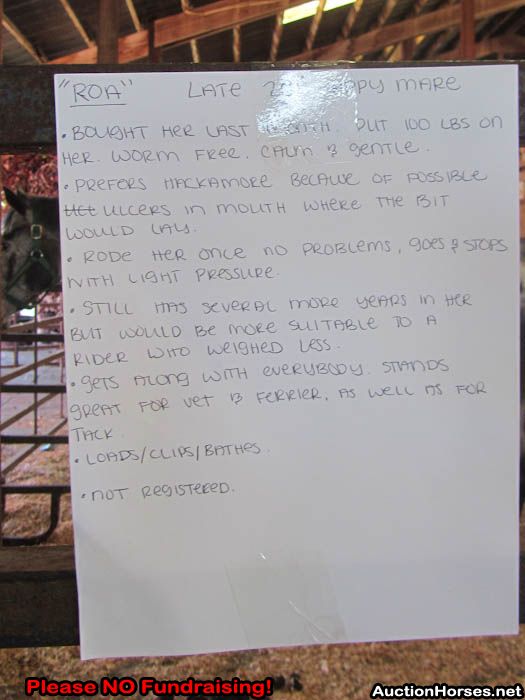 "ROA" LATE MARE
• BOUGHT HER LAST MONTH. PUT 100 LBS ON
HER. WORM FREE. CALM & GENTLE.
• PREFERS HACKAMORE BECAUSE OF POSSIBLE
ULCERS IN MOUTH WHERE THE BIT
WOULD LAY.
• RODE HER ONCE NO PROBLEMS, GOES & STOPS
WITH LIGHT PRESSURE.
• STILL HAS SEVERAL MORE YEARS IN HER
BUT WOULD BE MORE SUITABLE TO A
RIDER WHO WEIGHED LESS.
• GETS ALONG WITH EVERYBODY. STANDS
GREAT FOR VET & FERRIER, AS WELL AS FOR
TACK.
• LOADS/CLIPS/BATHES.
• NOT REGISTERED.
Please NO Fundraising!
AuctionHorses.net